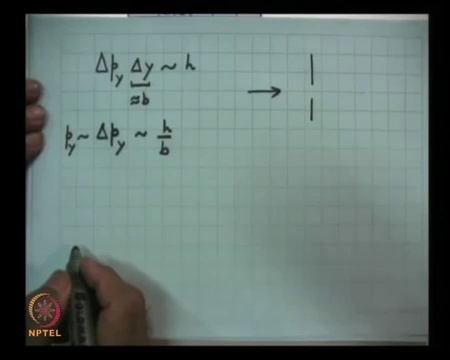 Δp_y Δy ~ h
≈b
p_y ~ Δp_y ~ h/b
NPTEL